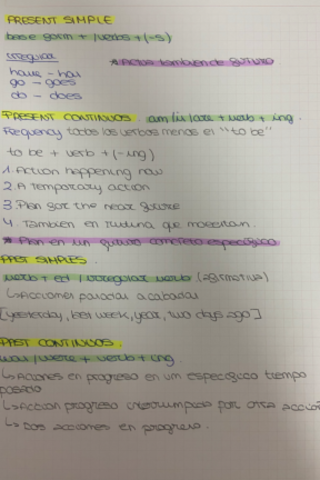 PRESENT SIMPLE
base form + /verbos + (-s)
irregular
* Actos también de FUTURO
have - has
go - goes
do - does
PRESENT CONTINUOS. am/is/are + verb + ing.
Frequency todos los verbos menos el "to be"
to be + verb + (-ing)
1. Action happening now
2. A temporary action
3. Plan for the near future
4. También en rutina que molestan.
* Plan en un futuro concreto específico
PAST SIMPLES.
verb + ed / irregular verb
↳ Acciones pasadas acabadas
[yesterday, last week, year, two days ago]
PAST CONTINUOS.
was/were + verb + ing
↳ Acciones en progreso en un específico tiempo
pasado
↳ Acción progreso interrumpida por otra acción
↳ Dos acciones en progreso.